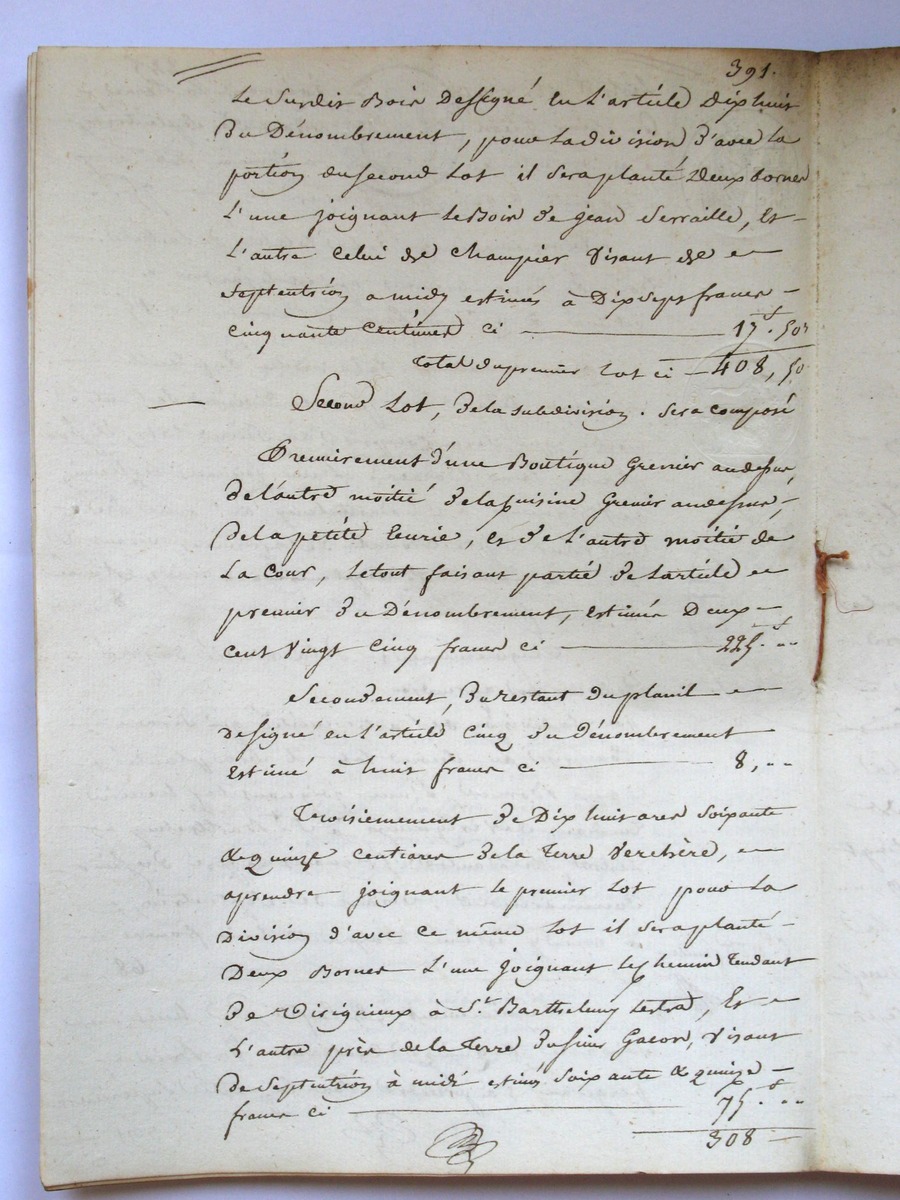 391.
Le Susdit Bois Désigné en L'article Dixhuit
Du Dénombrement, pour La division d'avec La
portion du second Lot il sera planté Deux bornes
L'une joignant Le Bois de jean Serraille, Et
L'autre Celui de Champier Visant de
Septentrion a midy estimés à Dix Sept francs
cinquante Centimes ci 17f. 50
Total du premier Lot ci 408, 50
Second Lot, de la subdivision. sera composé
Premierement d'une Boutique Grenier audessus,
de L'autre moitié de la Cuisine Grenier audessus,
De la petite Ecurie, et de L'autre moitié de
La Cour, Le tout faisant partie de L'article
premier du Dénombrement, Estimés Deux
Cent Vingt Cinq francs ci 225f. ..
Secondement, Du restant du planil
Designé en L'article Cinq du dénombrement
Estimé à huit francs ci 8, ..
Troisiemement de Dix huit ares Soixante
& quinze centiares de la Terre Verchère,
aprendre joignant le premier Lot pour La
Division d'avec ce même Lot il sera planté
Deux Bornes L'une joignant Le Chemin Tendant
De Virignieux à St. Barthelemy Lestra, Et
L'autre près de la Terre du sieur Gacon, Visant
de Septentrion à midi estimés Soixante & quinze
francs ci 75f. ..
308